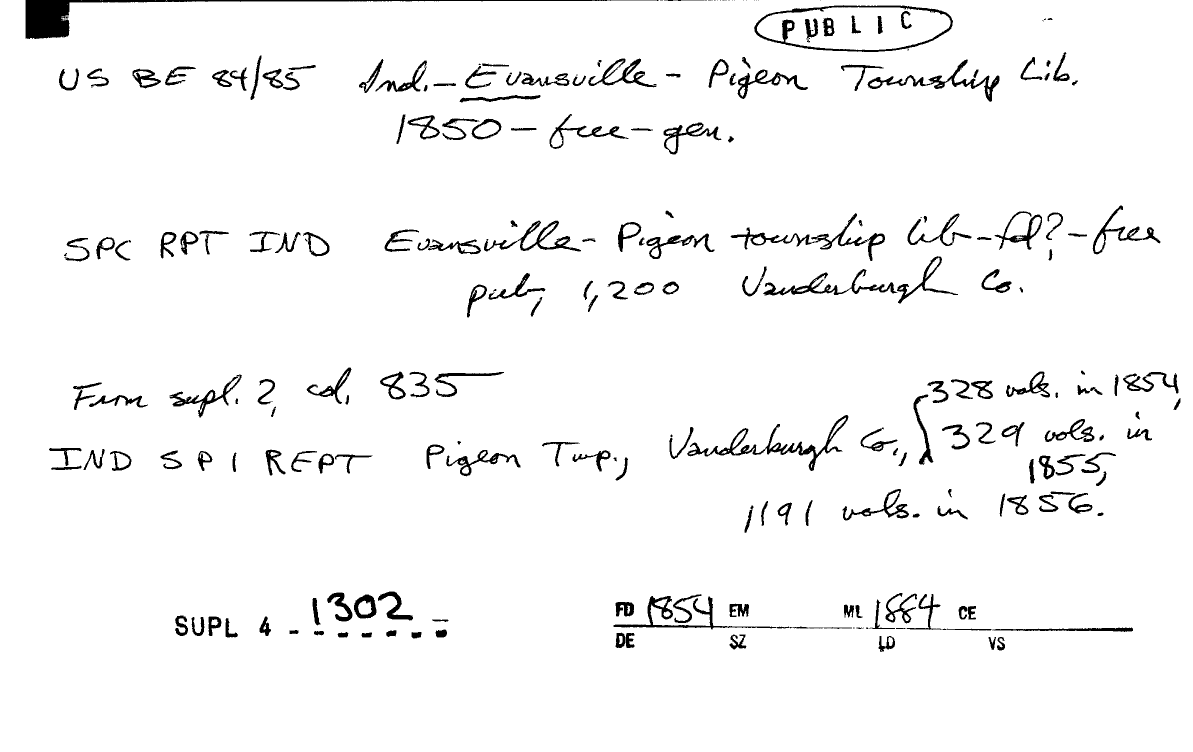 PUBLIC
US BE 84/85 Ind.- Evansville - Pigeon Township Lib.
1850 - free - gen.
SPC RPT IND Evansville - Pigeon township lib - fd? - free
pub, 1,200 Vanderburgh Co.
From supl. 2, col. 835
328 vols. in 1854,
IND SPI REPT Pigeon Twp., Vanderburgh Co., 329 vols. in
1855,
1191 vols. in 1856.
SUPL 4 - 1302
FD 1854 EM ML 1884 CE
DE SZ LD VS